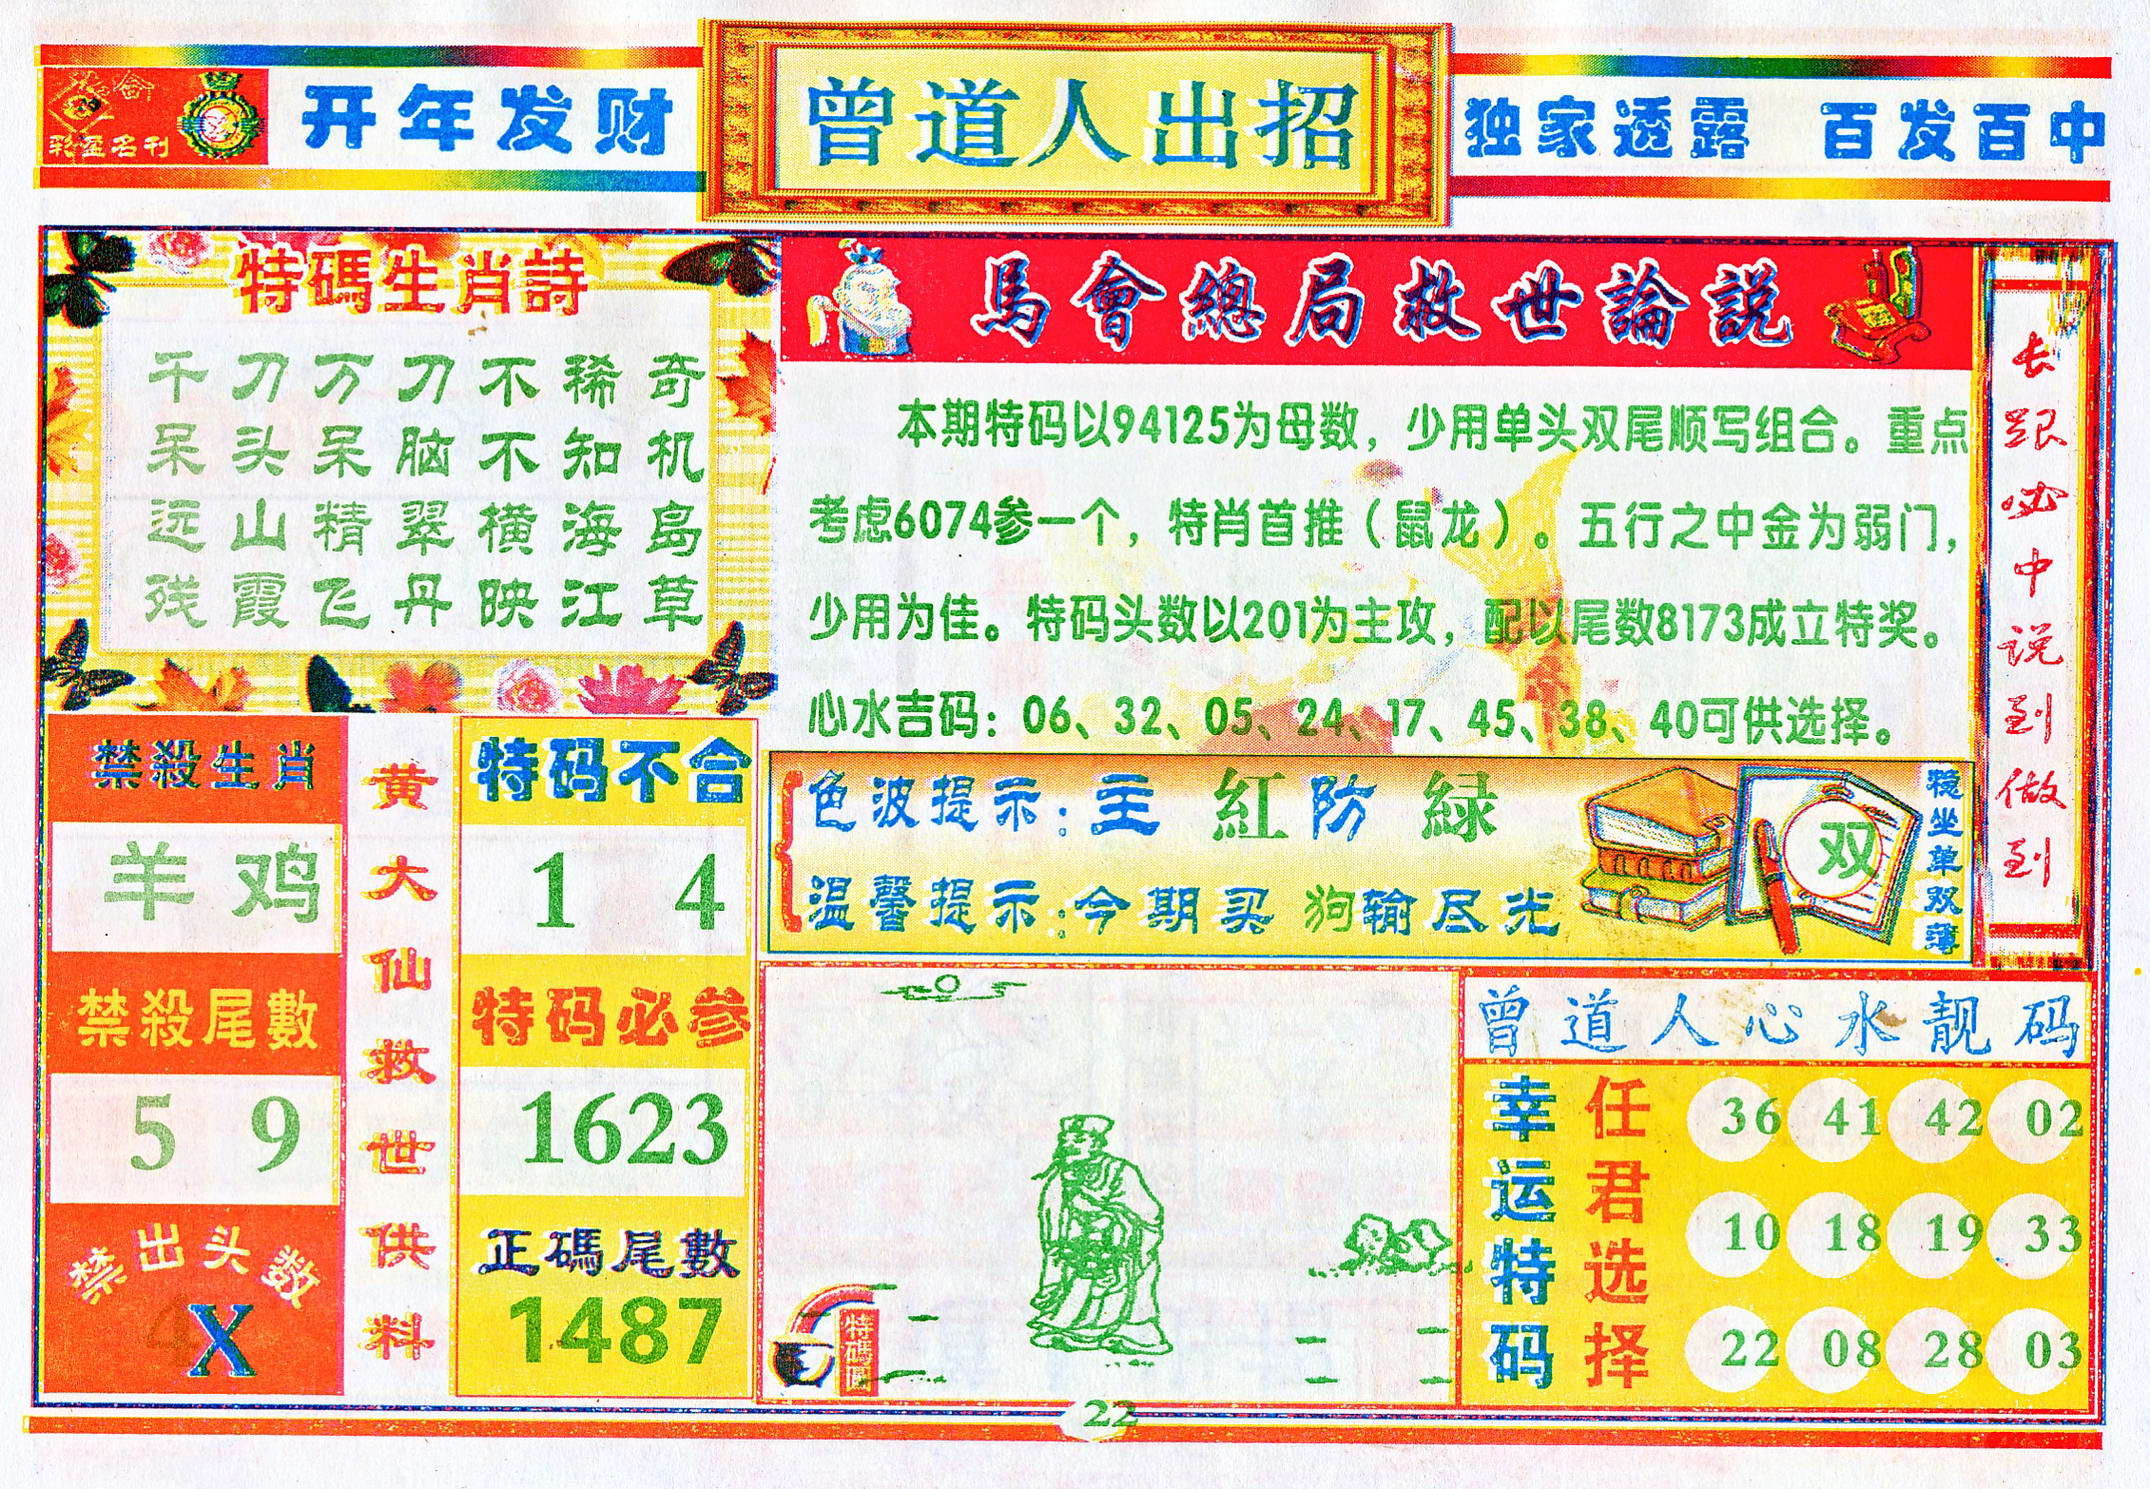 彩盈名刊
开年发财
曾道人出招
独家透露 百发百中
特碼生肖詩
千刀万刀不稀奇
呆头呆脑不知机
远山精翠横海岛
残霞飞丹映江草
馬會總局救世論説
本期特码以94125为母数，少用单头双尾顺写组合。重点
考虑6074参一个，特肖首推（鼠龙）。五行之中金为弱门，
少用为佳。特码头数以201为主攻，配以尾数8173成立特奖。
心水吉码：06、32、05、24、17、45、38、40可供选择。
长跟必中说到做到
禁殺生肖
羊 鸡
禁殺尾數
5 9
禁出头数
4
X
黄大仙救世供料
特码不合
1 4
特码必参
1623
正碼尾數
1487
色波提示：主 紅 防 緑
温馨提示：今期买 狗输尽光
双
稳坐单双薄
特碼圖
曾道人心水靓码
幸运特码
任君选择
36 41 42 02
10 18 19 33
22 08 28 03
22